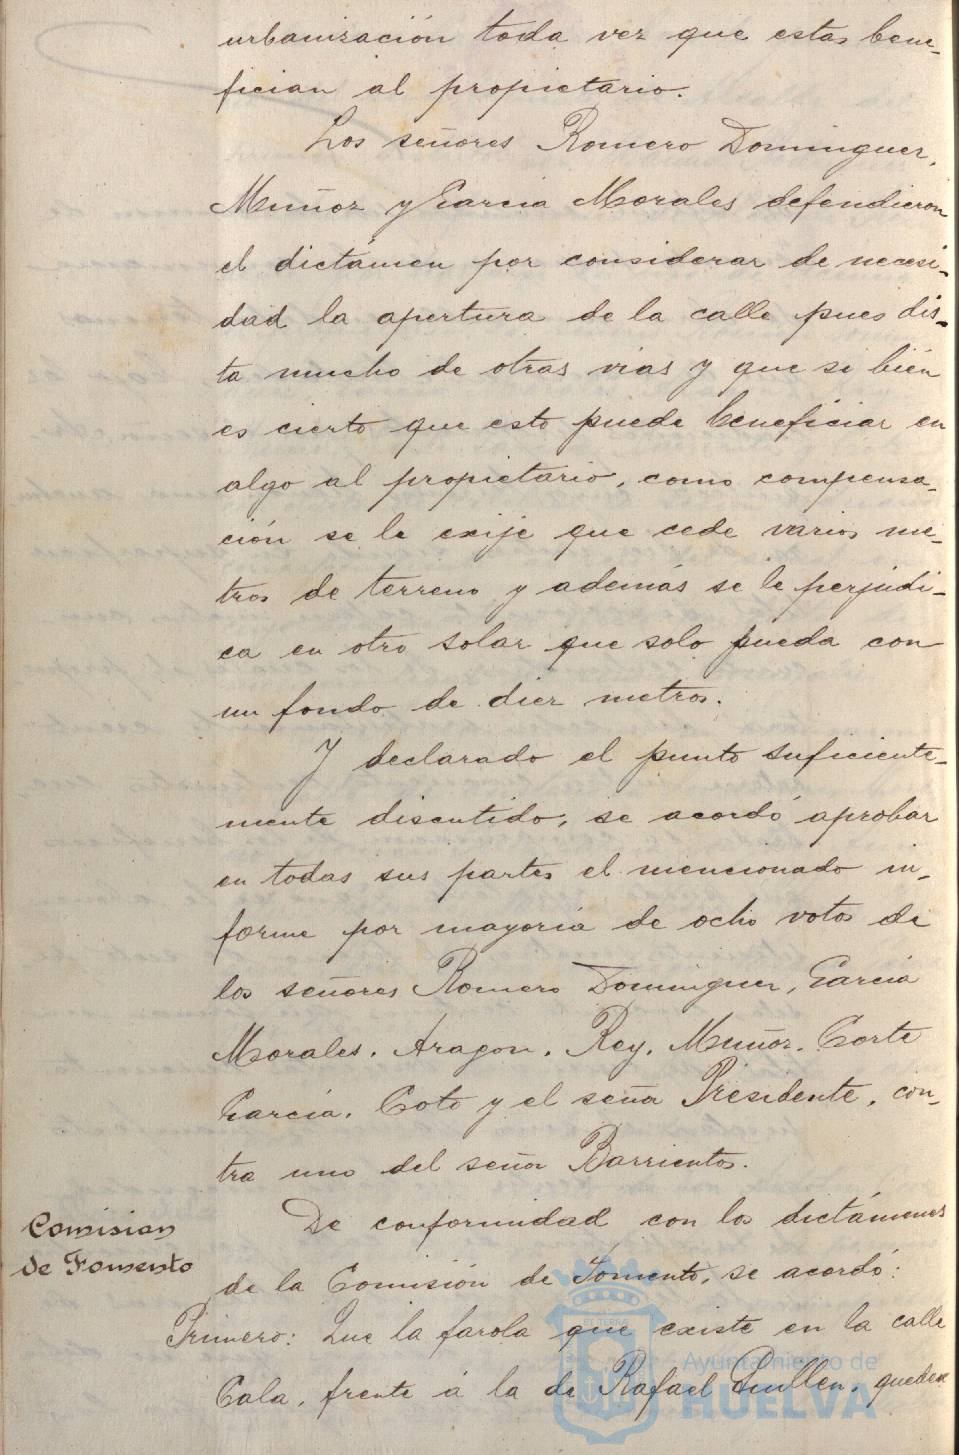 urbanización toda vez que estas bene-
fician al propietario.
Los señores Romero Dominguez,
Muñoz y Garcia Morales defendieron
el dictámen por considerar de necesi-
dad la apertura de la calle pues dis-
ta mucho de otras vias y que si bién
es cierto que esto puede beneficiar en
algo al propietario, como compensa-
ción se le exije que cede varios me-
tros de terreno y además se le perjudi-
ca en otro solar que solo queda con
un fondo de diez metros.
Y declarado el punto suficiente-
mente discutido, se acordó aprobar
en todas sus partes el mencionado in-
forme por mayoria de ocho votos de
los señores Romero Dominguez, Garcia
Morales, Aragon, Rey, Muñoz, Corte
Garcia, Coto y el señor Presidente, con-
tra uno del señor Barrientos.
Comision
de Fomento
De conformidad con los dictámenes
de la Comisión de Fomento, se acordó:
Primero: Que la farola que existe en la calle
Cala, frente á la de Rafael Guillen, queden
Ayuntamiento de
HUELVA